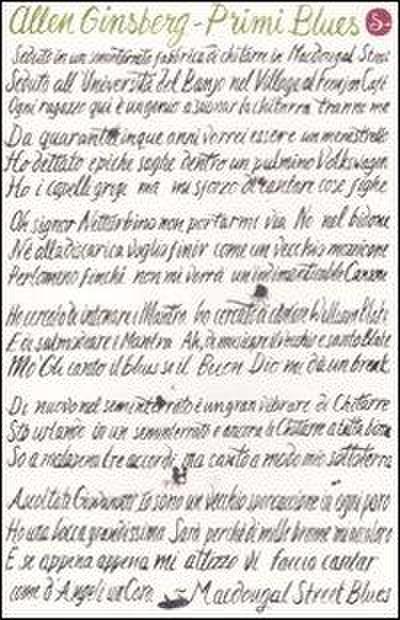 Allen Ginsberg - Primi Blues S.
Seduto in un seminterrato fabbrica di chitarre in Macdougal Street
Seduto all'Università del Banjo nel Village al Fenjon Café
Ogni ragazzo qui è un genio a suonar la chitarra tranne me
Da quarantacinque anni vorrei essere un menestrello
Ho dettato epiche saghe dentro un pulmino Volkswagen
Ho i capelli grigi ma mi sforzo di cantare cose fighe
Oh signor Netturbino non portarmi via No nel bidone
Né alla discarica voglio finir come un vecchio mozzicone
Perlomeno finché non mi verrà un indimenticabile Canzone
Ho cercato di intonare i Mantra ho cercato di William Blake
E di salmodiare i Mantra Ah, di vecchio e santo Blake
Mo' Gli canto il blues se il Buon Dio mi dà un break
Di nuovo nel seminterrato è un gran vibrare di Chitarre
Sto urlando in un seminterrato e ancora le Chitarre a tutta
So a malapena tre accordi, ma canto a modo mio sottoterra
Ascoltate Giovanotti Io sono un vecchio sporcaccione in ogni
Ho una bocca grandissima Sarà perché di mille brame
E se appena appena mi attizzo Vi faccio cantar
come d'Angeli un Coro - Macdougal Street Blues